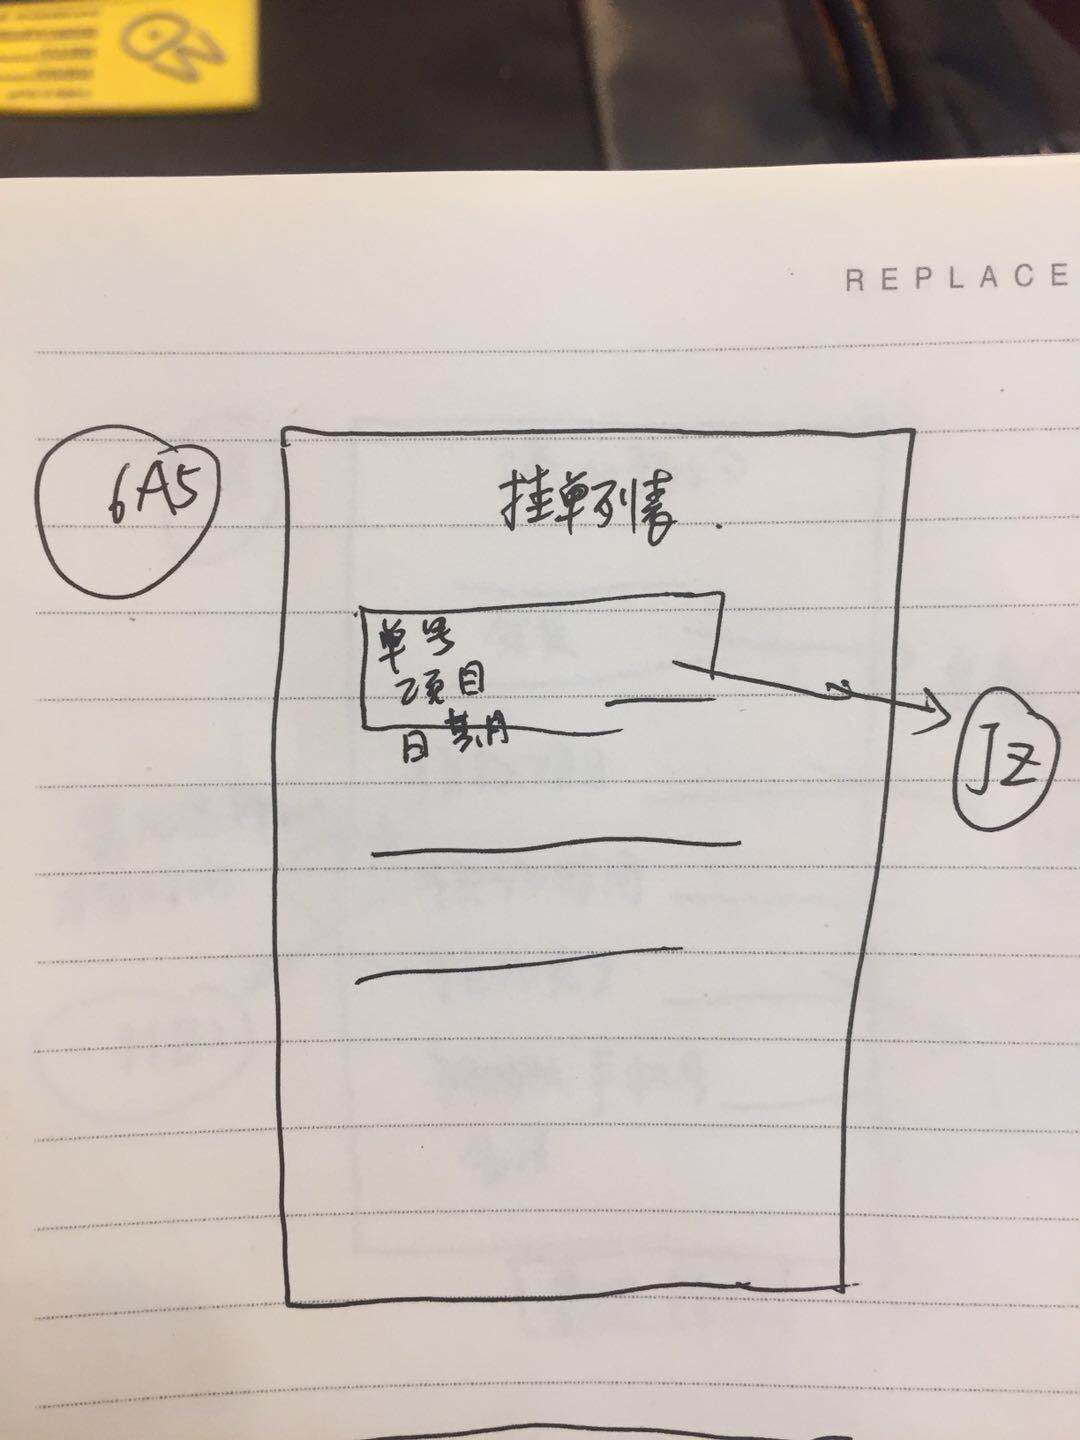 REPLACE
6A5
挂单列表
单号
项目
日期
JZ